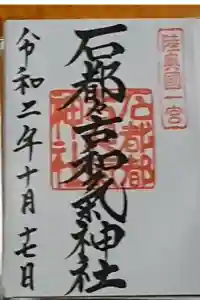 陸奥國一宮
石都々古和氣神社
令和二年十月十七日
石都都
神社